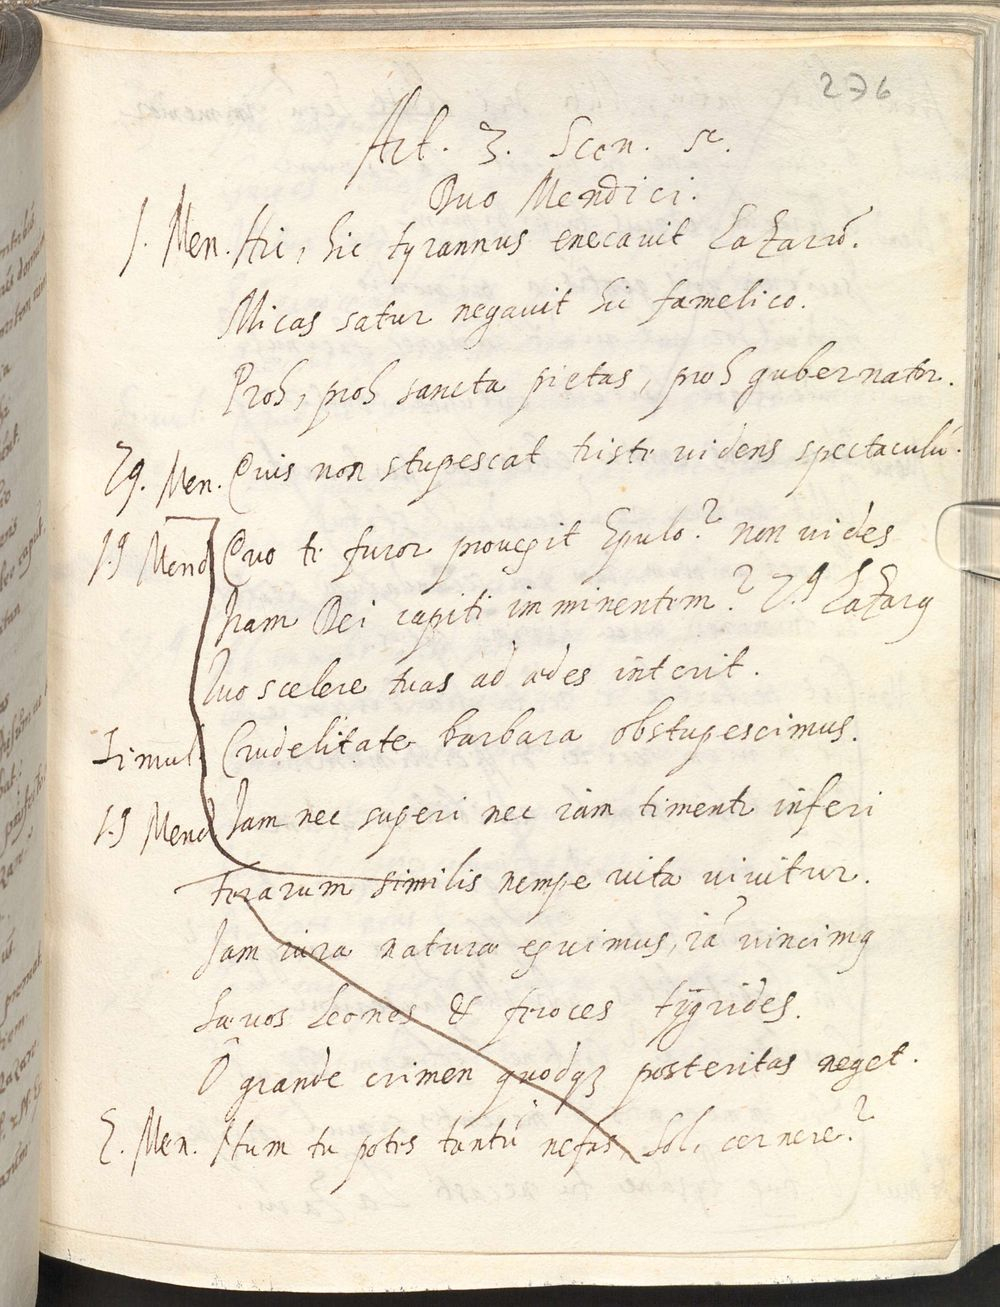 276
Act. 3. Scen. 5ª.
Duo Mendici.
1. Men. Hic, hic tyrannus enecavit Lazarũ.
Micas satur negavit hic famelico.
Proh, proh sancta pietas, proh gubernator.
29. Men. Quis non stupescat triste videns spectaculũ.
1.9 Mend. Quo te furor provexit Epulo? non vides
Iram Dei capiti imminentem? 2.9 Lazarꝰ
Tuo scelere tuas ad ædes interit.
Simul. Crudelitate barbara obstupescimus.
1.9 Mend. Iam nec superi nec iam timentr inferi
Ferarum similis nempe vita vivitur.
Iam iura naturæ exuimus, iã vincimꝰ
Sævos Leones & feroces tygrides.
Ô grande crimen quodqꝫ posteritas neget.
2. Men. Num tu potes tantũ nefas, Sol, cernere?